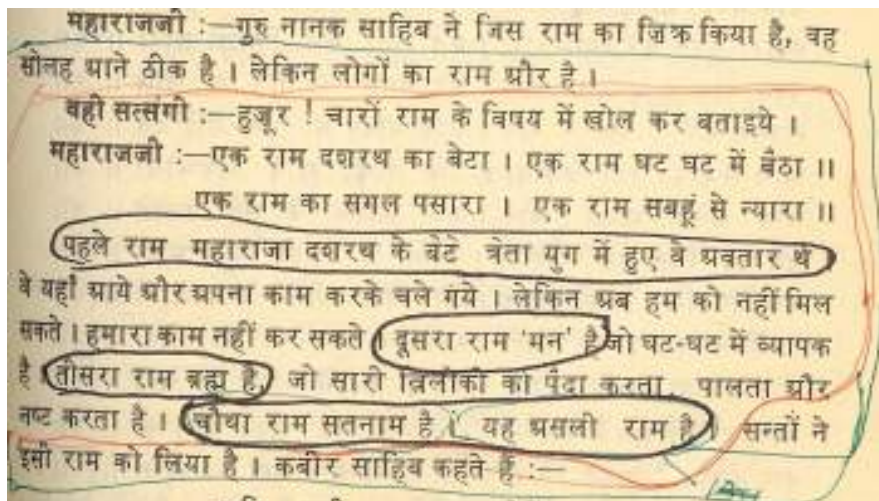 महाराजजी :—गुरु नानक साहिब ने जिस राम का ज़िक्र किया है, वह
सोलह आने ठीक है । लेकिन लोगों का राम और है ।
वही सत्संगी :—हुजूर ! चारों राम के विषय में खोल कर बताइये ।
महाराजजी :—एक राम दशरथ का बेटा । एक राम घट घट में बैठा ॥
एक राम का सगल पसारा । एक राम सबहूं से न्यारा ॥
पहले राम महाराजा दशरथ के बेटे त्रेता युग में हुए वे अवतार थे
वे यहाँ आये और अपना काम करके चले गये । लेकिन अब हम को नहीं मिल
सकते । हमारा काम नहीं कर सकते । दूसरा राम 'मन' है जो घट-घट में व्यापक
है । तीसरा राम ब्रह्म है, जो सारी त्रिलोकी को पैदा करता, पालता और
नष्ट करता है । चौथा राम सतनाम है । यह असली राम है । सन्तों ने
इसी राम को लिया है । कबीर साहिब कहते हैं :—